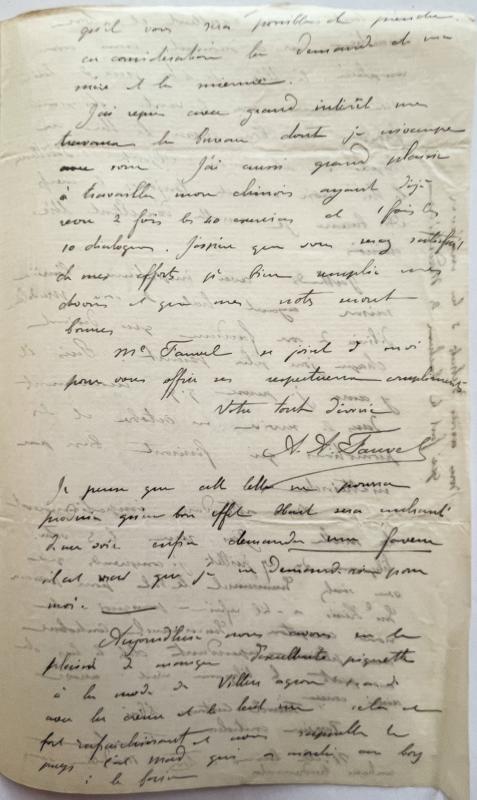 qu'il vous sera possible de prendre
en considération la demande de ma
mère et la mienne.
J'ai repris avec grand intérêt mes
travaux le bureau dont je m'occupe
J'ai aussi grand plaisir
à travailler mon chinois ayant déjà
revu 2 fois les 40 exercices et 1 fois les
10 dialogues. J'espère que vous serez satisfait
de mes efforts j'ai bien rempli mes
devoirs et que mes notes seront
bonnes
Me Fauvel se joint à moi
pour vous offrir ses respectueux compliments
Votre tout dévoué
A. A. Fauvel
Je pense que cette lettre ne pourra
produire qu'un bon effet Hart sera enchanté
de me voir enfin demander une faveur
il est vrai que je ne demande rien pour
moi.
Aujourd'hui nous avons eu le
plaisir de manger d'excellente piquette
à la mode de Villers
avec la crème et le lait
fort rafraichissant et nous rappelle le
pays c'est Maud qui a